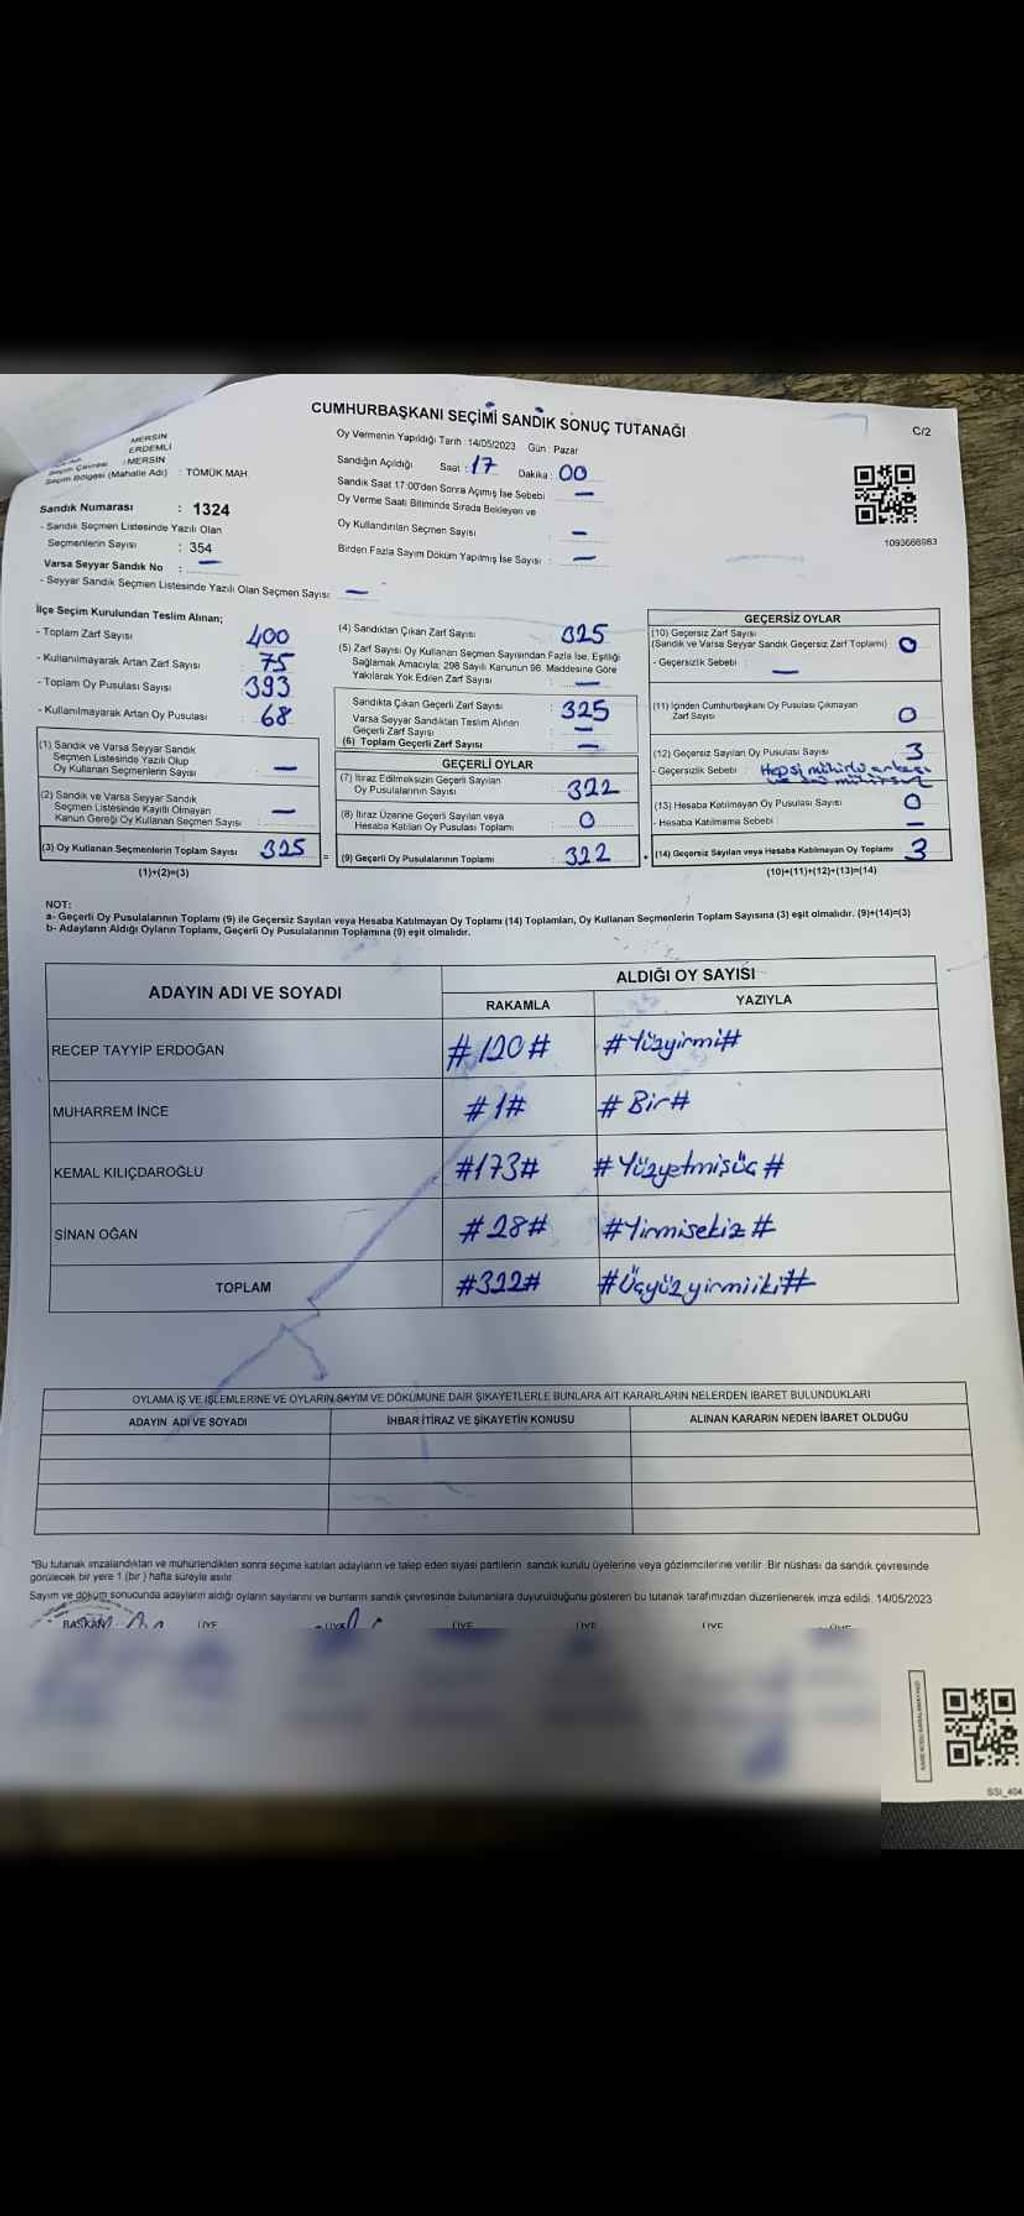 CUMHURBAŞKANI SEÇİMİ SANDIK SONUÇ TUTANAĞI
C/2
MERSİN
ERDEMLİ
Seçim Çevresi : MERSİN
Seçim Bölgesi (Mahalle Adı) : TÖMÜK MAH.
Sandık Numarası : 1324
- Sandık Seçmen Listesinde Yazılı Olan
Seçmenlerin Sayısı : 354
Varsa Seyyar Sandık No : —
- Seyyar Sandık Seçmen Listesinde Yazılı Olan Seçmen Sayısı —
Oy Vermenin Yapıldığı Tarih : 14/05/2023 Gün : Pazar
Sandığın Açıldığı Saat : 17 Dakika : 00
Sandık Saat 17:00'den Sonra Açımış İse Sebebi —
Oy Verme Saati Bitiminde Sırada Bekleyen ve
Oy Kullandırılan Seçmen Sayısı : —
Birden Fazla Sayım Döküm Yapılmış İse Sayısı : —
1093666983
İlçe Seçim Kurulundan Teslim Alınan;
- Toplam Zarf Sayısı 400
- Kullanılmayarak Artan Zarf Sayısı 75
- Toplam Oy Pusulası Sayısı 393
- Kullanılmayarak Artan Oy Pusulası 68
(1) Sandık ve Varsa Seyyar Sandık
Seçmen Listesinde Yazılı Olup
Oy Kullanan Seçmenlerin Sayısı —
(2) Sandık ve Varsa Seyyar Sandık
Seçmen Listesinde Kayıtlı Olmayan
Kanun Gereği Oy Kullanan Seçmen Sayısı : —
(3) Oy Kullanan Seçmenlerin Toplam Sayısı 325
(1)+(2)=(3)
(4) Sandıktan Çıkan Zarf Sayısı 325
(5) Zarf Sayısı Oy Kullanan Seçmen Sayısından Fazla İse, Eşitliği
Sağlamak Amacıyla; 298 Sayılı Kanunun 98. Maddesine Göre
Yakılarak Yok Edilen Zarf Sayısı : —
Sandıkta Çıkan Geçerli Zarf Sayısı : 325
Varsa Seyyar Sandıktan Teslim Alınan
Geçerli Zarf Sayısı : —
(6) Toplam Geçerli Zarf Sayısı —
GEÇERLİ OYLAR
(7) İtiraz Edilmeksizin Geçerli Sayılan
Oy Pusulalarının Sayısı : 322
(8) İtiraz Üzerine Geçerli Sayılan veya
Hesaba Katılan Oy Pusulası Toplamı : 0
= (9) Geçerli Oy Pusulalarının Toplamı : 322
GEÇERSİZ OYLAR
(10) Geçersiz Zarf Sayısı
(Sandık ve Varsa Seyyar Sandık Geçersiz Zarf Toplamı) : 0
- Geçersizlik Sebebi : —
(11) İçinden Cumhurbaşkanı Oy Pusulası Çıkmayan
Zarf Sayısı : 0
(12) Geçersiz Sayılan Oy Pusulası Sayısı 3
- Geçersizlik Sebebi : Hepsi mühürlü
(13) Hesaba Katılmayan Oy Pusulası Sayısı : 0
- Hesaba Katılmama Sebebi : —
+ (14) Geçersiz Sayılan veya Hesaba Katılmayan Oy Toplamı : 3
(10)+(11)+(12)+(13)=(14)
NOT:
a- Geçerli Oy Pusulalarının Toplamı (9) ile Geçersiz Sayılan veya Hesaba Katılmayan Oy Toplamı (14) Toplamları, Oy Kullanan Seçmenlerin Toplam Sayısına (3) eşit olmalıdır. (9)+(14)=(3)
b- Adayların Aldığı Oyların Toplamı, Geçerli Oy Pusulalarının Toplamına (9) eşit olmalıdır.
ADAYIN ADI VE SOYADI
ALDIĞI OY SAYISI
RAKAMLA YAZIYLA
RECEP TAYYİP ERDOĞAN #120# #Yüzyirmi#
MUHARREM İNCE #1# #Bir#
KEMAL KILIÇDAROĞLU #173# #Yüzyetmişüç#
SİNAN OĞAN #28# #Yirmisekiz#
TOPLAM #322# #Üçyüzyirmiiki#
OYLAMA İŞ VE İŞLEMLERİNE VE OYLARIN SAYIM VE DÖKÜMÜNE DAİR ŞİKAYETLERLE BUNLARA AİT KARARLARIN NELERDEN İBARET BULUNDUKLARI
ADAYIN ADI VE SOYADI İHBAR İTİRAZ VE ŞİKAYETİN KONUSU ALINAN KARARIN NEDEN İBARET OLDUĞU
*Bu tutanak imzalandıktan ve mühürlendikten sonra seçime katılan adayların ve talep eden siyasi partilerin sandık kurulu üyelerine veya gözlemcilerine verilir. Bir nüshası da sandık çevresinde
görülecek bir yere 1 (bir) hafta süreyle asılır.
Sayım ve döküm sonucunda adayların aldığı oyların sayılarını ve bunların sandık çevresinde bulunanlara duyurulduğunu gösteren bu tutanak tarafımızdan düzenlenerek imza edildi. 14/05/2023
BAŞKAN ÜYE ÜYE ÜYE ÜYE ÜYE ÜYE